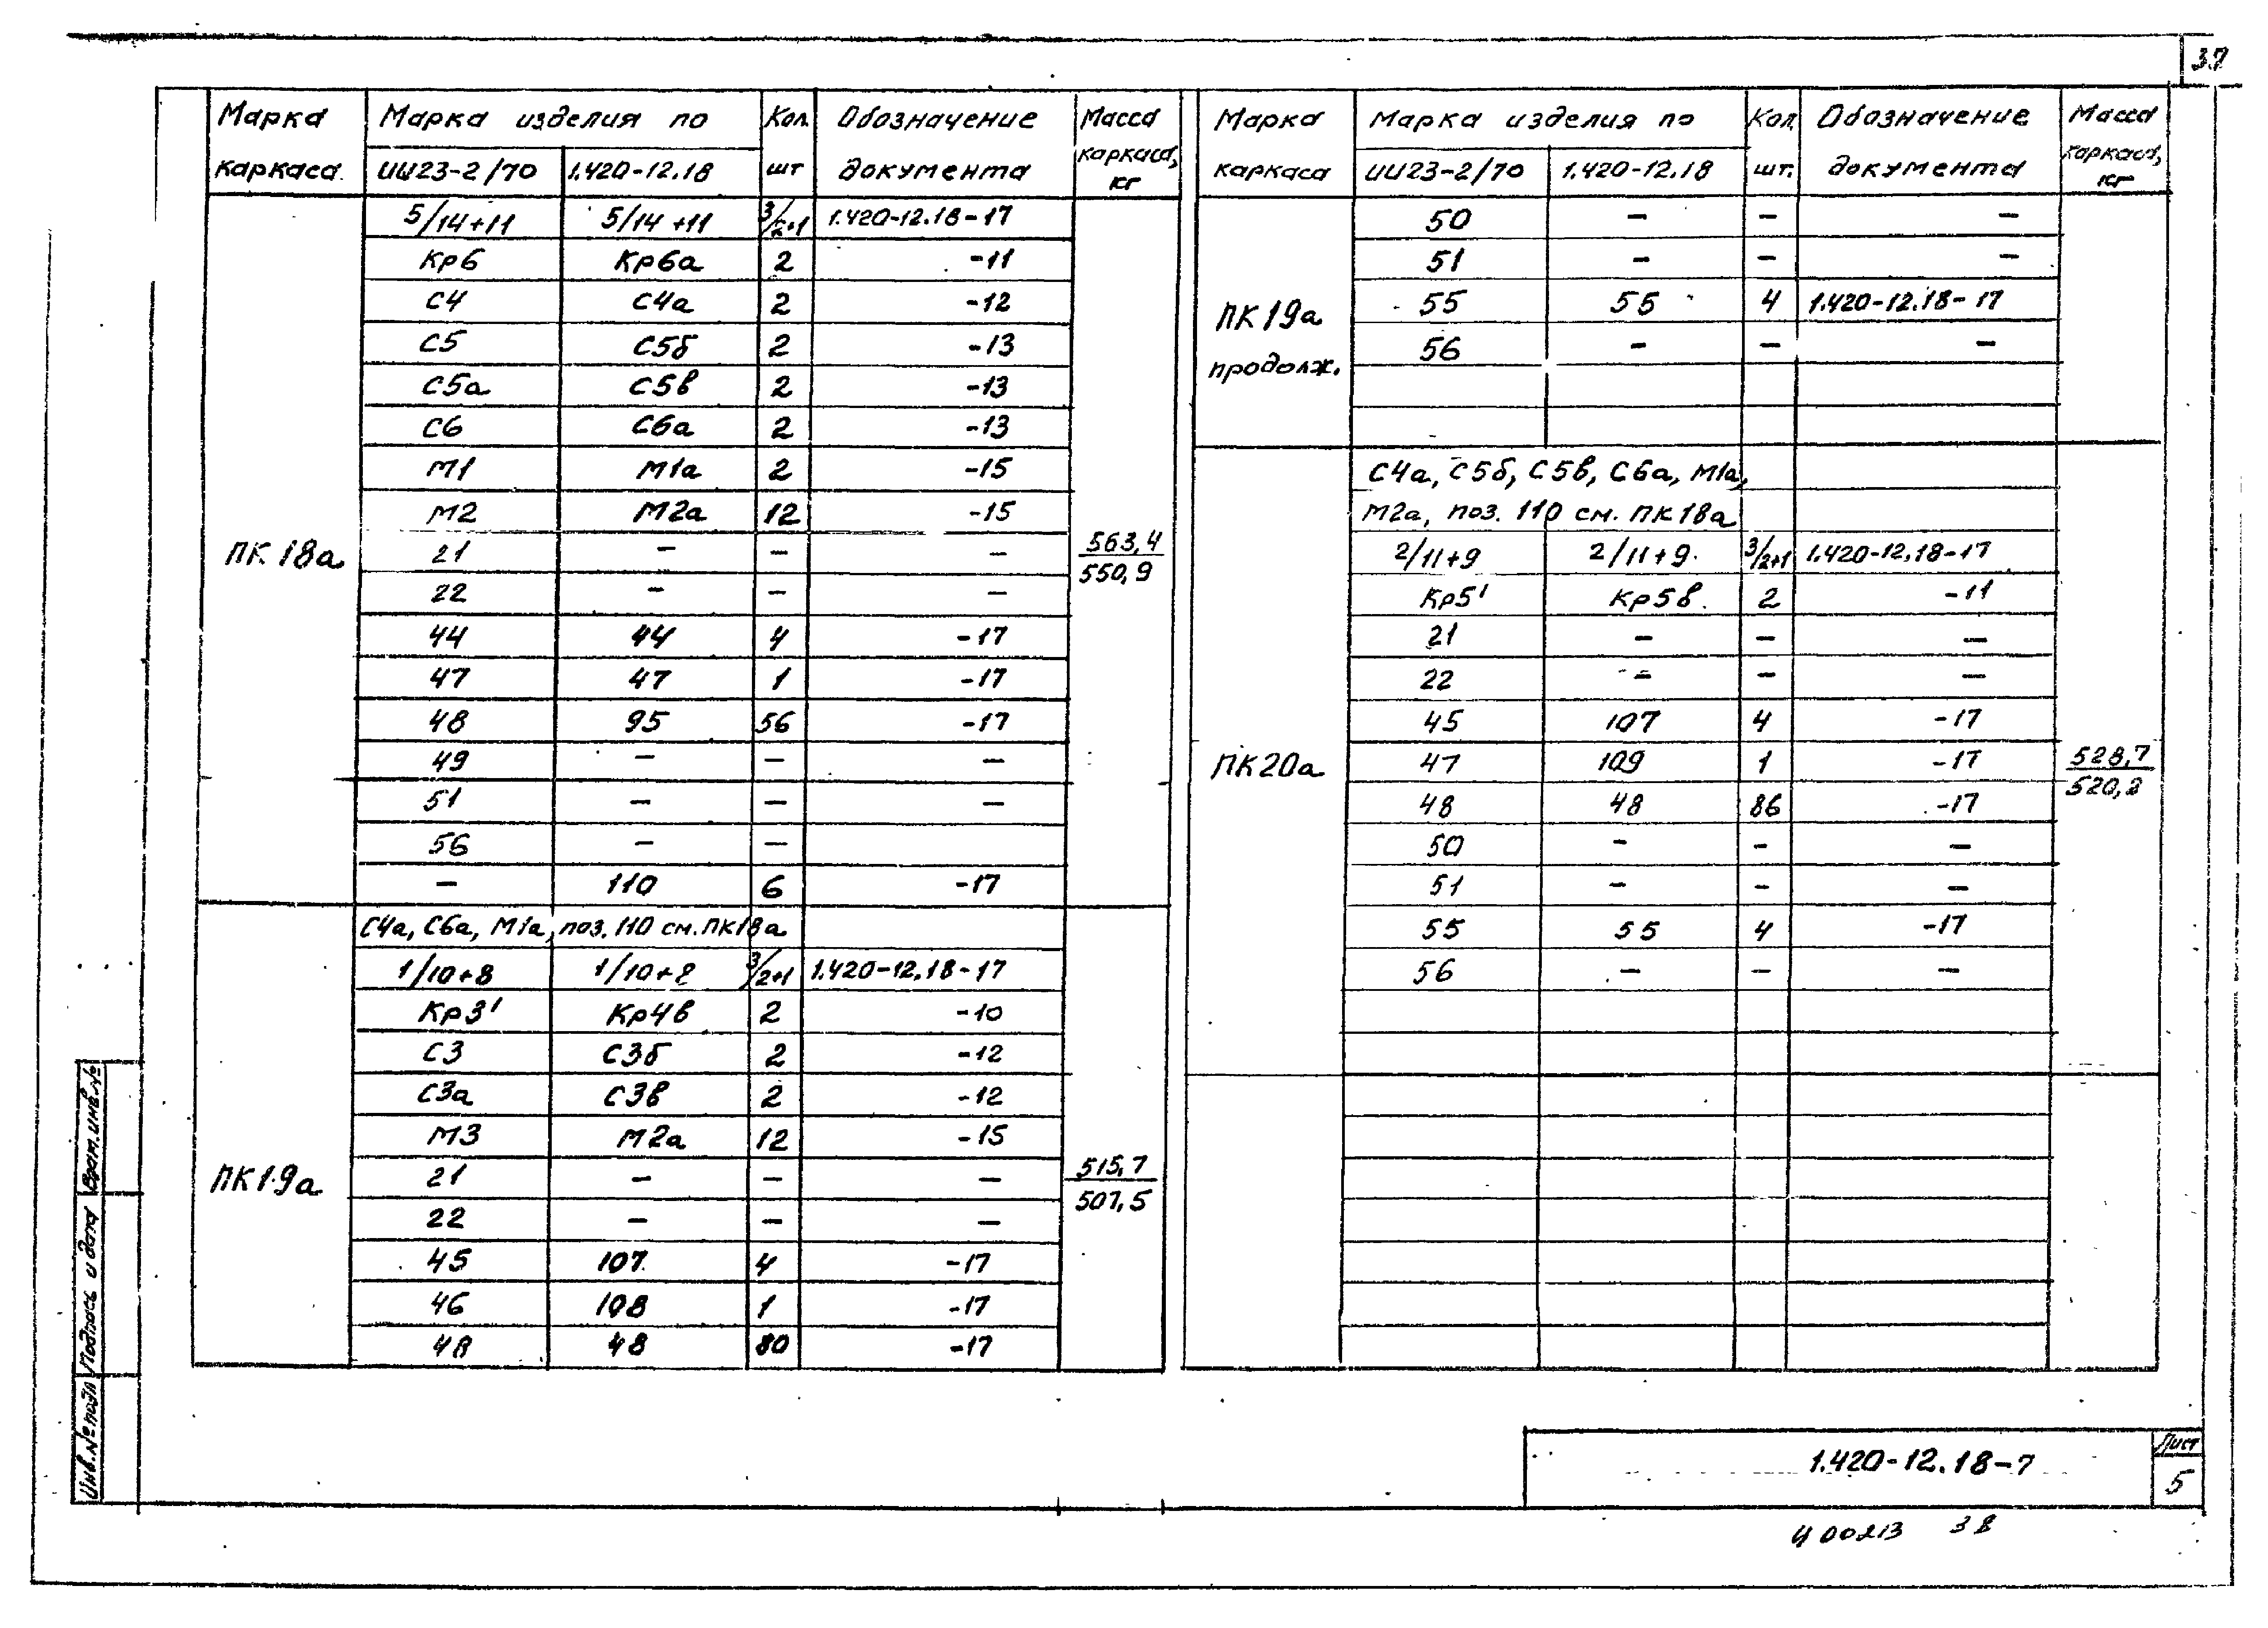 37
Марка каркаса | Марка изделия по | Кол. шт | Обозначение документа | Масса каркаса, кг
ИИ23-2/70 | 1.420-12.18
ПК 18а | 563,4 / 550,9
5/14+11 | 5/14+11 | 3/2+1 | 1.420-12.18-17
Кр6 | Кр6а | 2 | -11
С4 | С4а | 2 | -12
С5 | С5б | 2 | -13
С5а | С5в | 2 | -13
С6 | С6а | 2 | -13
М1 | М1а | 2 | -15
М2 | М2а | 12 | -15
21 | – | – | –
22 | – | – | –
44 | 44 | 4 | -17
47 | 47 | 1 | -17
48 | 95 | 56 | -17
49 | – | – | –
51 | – | – | –
56 | – | –
– | 110 | 6 | -17
ПК19а | 515,7 / 507,5
С4а, С6а, М1а, поз. 110 см. ПК18а
1/10+8 | 1/10+8 | 3/2+1 | 1.420-12.18-17
Кр3' | Кр4в | 2 | -10
С3 | С3б | 2 | -12
С3а | С3в | 2 | -12
М3 | М2а | 12 | -15
21 | – | – | –
22 | – | – | –
45 | 107 | 4 | -17
46 | 108 | 1 | -17
48 | 48 | 80 | -17
Марка каркаса | Марка изделия по | Кол. шт. | Обозначение документа | Масса каркаса, кг
ИИ23-2/70 | 1.420-12.18
ПК19а продолж.
50 | – | – | –
51 | – | – | –
55 | 55 | 4 | 1.420-12.18-17
56 | – | – | –
ПК20а | 528,7
С4а, С5б, С5в, С6а, М1а,
М2а, поз. 110 см. ПК18а
2/11+9 | 2/11+9 | 3/2+1 | 1.420-12.18-17
Кр5' | Кр5в | 2 | -11
21 | – | – | –
22 | – | – | –
45 | 107 | 4 | -17
47 | 109 | 1 | -17
48 | 48 | 86 | -17
50 | – | – | –
51 | – | – | –
55 | 55 | 4 | -17
56 | – | – | –
Инв.№ подл Подпись и дата Взам.инв.№
1.420-12.18-7
Лист
5
Ц00213 38